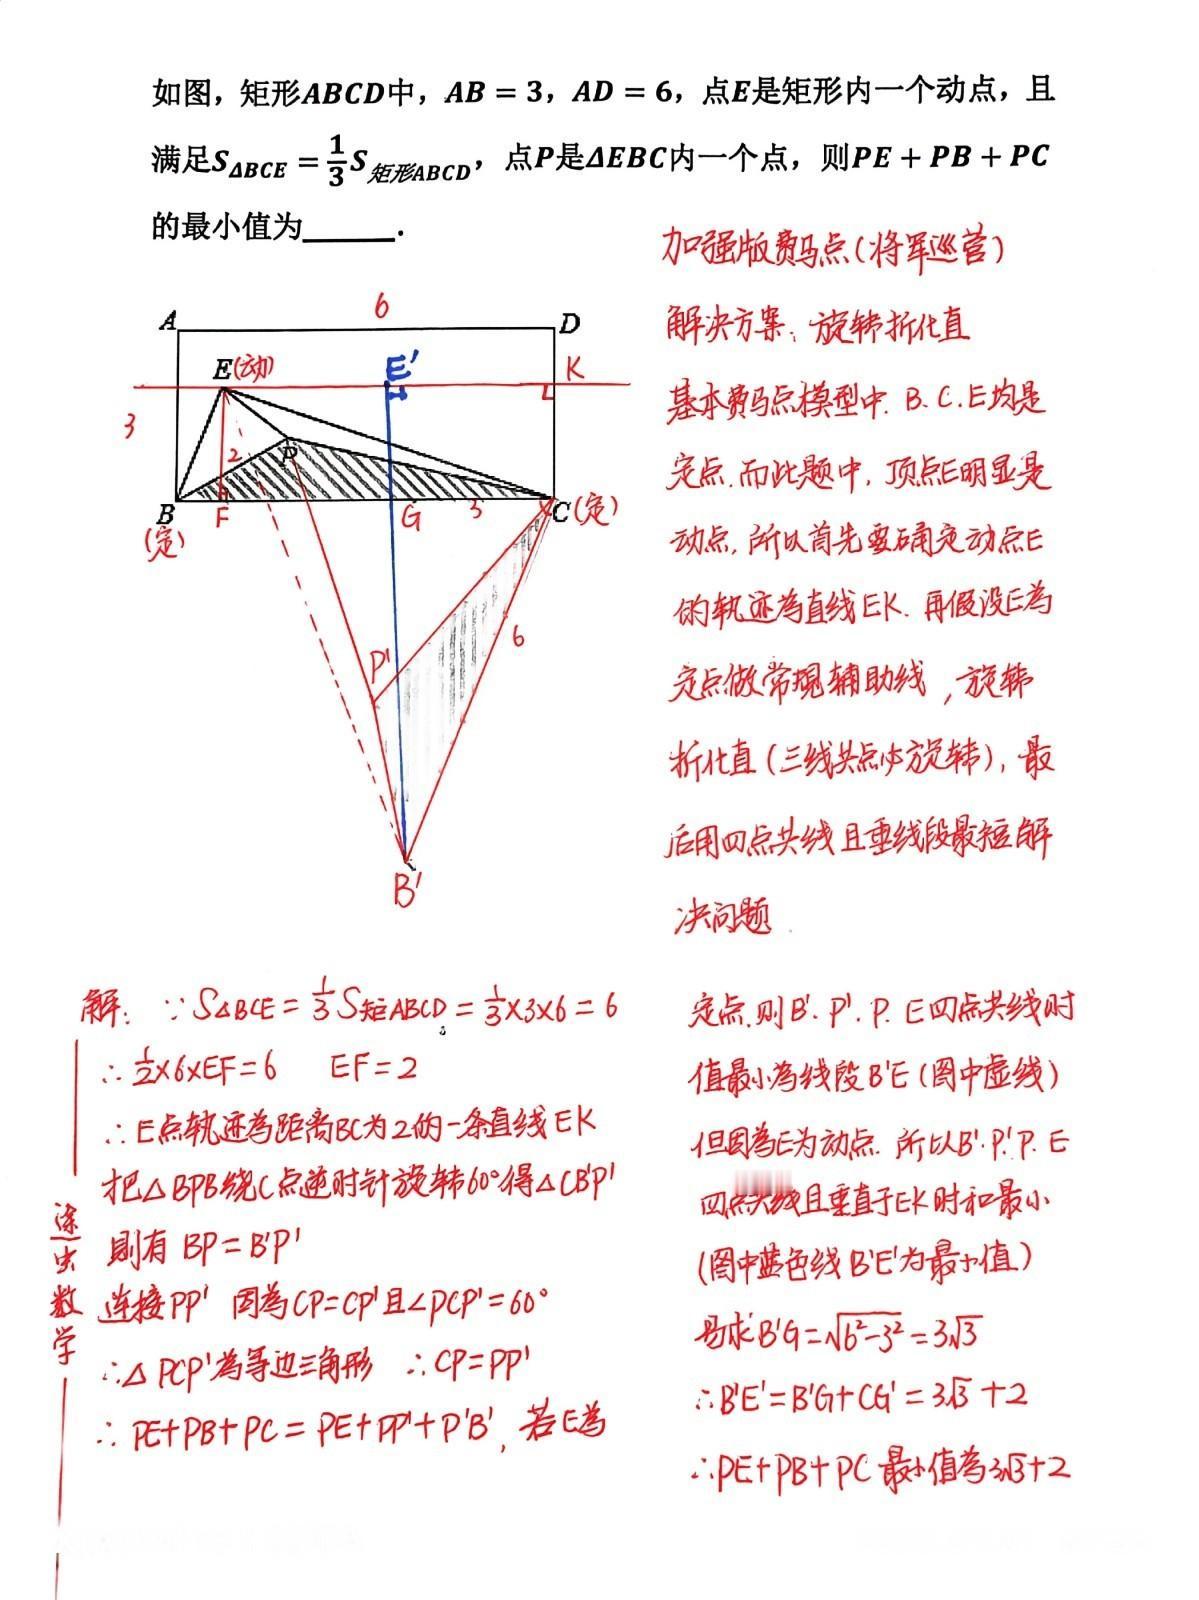 如图，矩形ABCD中，AB = 3，AD = 6，点E是矩形内一个动点，且
满足S△BCE = 1/3 S矩形ABCD，点P是ΔEBC内一个点，则PE + PB + PC
的最小值为______.
加强版费马点(将军巡营)
解决方案：旋转折化直
基本费马点模型中. B. C. E均是
定点. 而此题中，顶点E明显是
动点. 所以首先要确定动点E
的轨迹為直线EK. 再假设E為
定点做常规辅助线，旋转
折化直 (三线共点必旋转)，最
后用四点共线且垂线段最短解
决问题.
A
6
D
E(动)
E'
K
3
2
P
B
(定)
F
G
3
C(定)
P'
6
B'
解：∵ S△BCE = 1/3 S矩ABCD = 1/3×3×6 = 6
∴ 1/2×6×EF=6 EF=2
∴ E点轨迹為距离BC为2的一条直线EK
把△BPB绕C点逆时针旋转60°得△CB'P'
則有 BP=B'P'
连接PP' 因為CP=CP'且∠PCP'=60°
∴△PCP'為等边三角形 ∴CP=PP'
∴ PE+PB+PC = PE+PP'+P'B'，若E為
定点.则B'. P'. P. E四点共线时
值最小為线段B'E (图中虚线)
但因為E为动点. 所以B'. P'. P. E
四点共线且垂直于EK时和最小
(图中蓝色线B'E'为最小值)
易求B'G=√6²-3²=3√3
∴B'E'=B'G+CG'=3√3+2
∴PE+PB+PC 最小值為3√3+2
逐虫数学